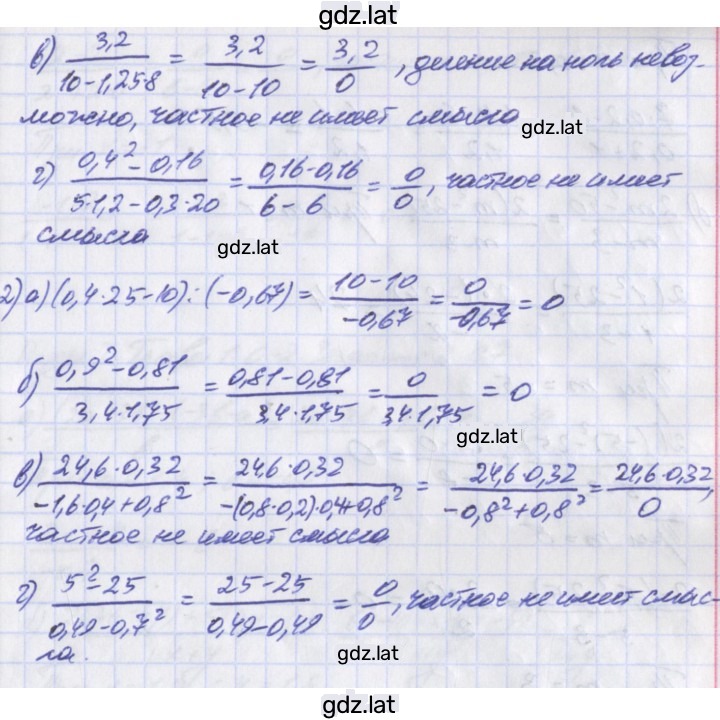 gdz.lat
в) 3,2/(10-1,25·8) = 3,2/(10-10) = 3,2/0, деление на ноль невоз-
можно, частное не имеет смысла
gdz.lat
г) (0,4²-0,16)/(5·1,2-0,3·20) = (0,16-0,16)/(6-6) = 0/0, частное не имеет
смысла
gdz.lat
2) а) (0,4·25-10):(-0,67) = (10-10)/(-0,67) = 0/(-0,67) = 0
б) (0,9²-0,81)/(3,4·1,75) = (0,81-0,81)/(3,4·1,75) = 0/(3,4·1,75) = 0
gdz.lat
в) (24,6·0,32)/(-1,6·0,4+0,8²) = (24,6·0,32)/(-(0,8·0,2)·0,4+0,8²) = (24,6·0,32)/(-0,8²+0,8²) = (24,6·0,32)/0,
частное не имеет смысла
г) (5²-25)/(0,49-0,7²) = (25-25)/(0,49-0,49) = 0/0, частное не имеет смыс-
ла.
gdz.lat
gdz.lat